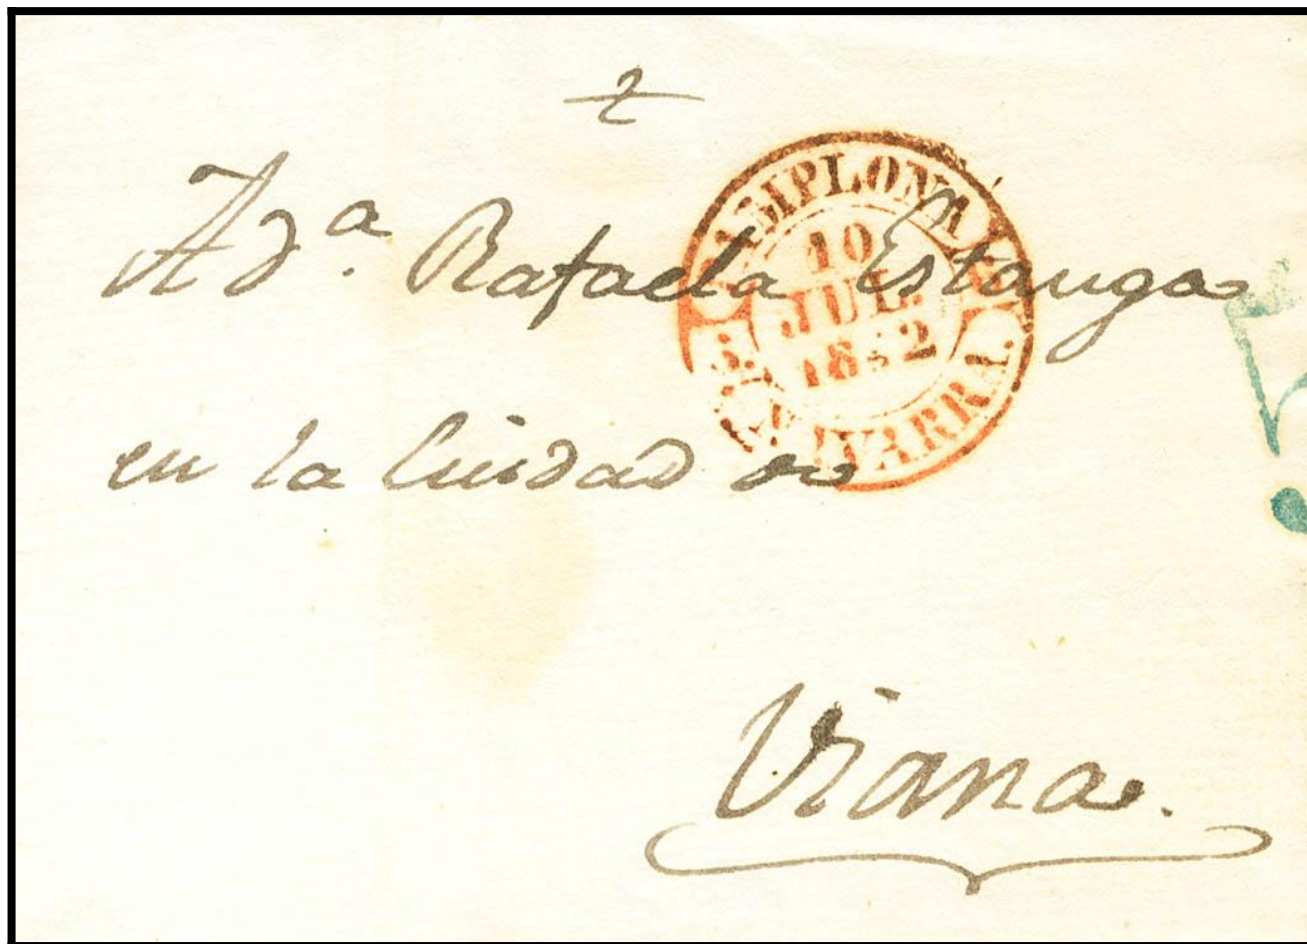 A Dª. Rafaela Estanga
en la Ciudad de
Viana.
PAMPLONA
10
JUL.
NAVARRA